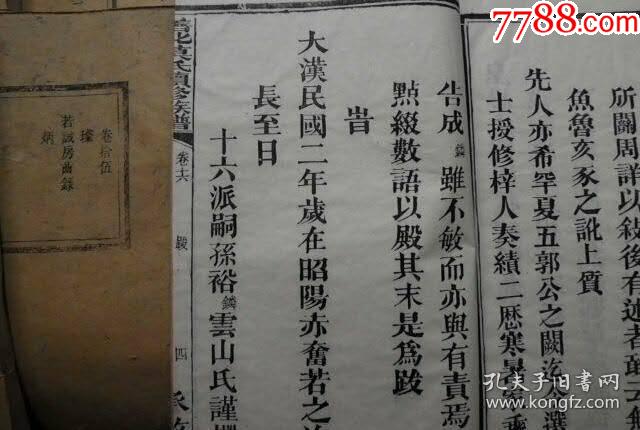 所闗周詳以敍後有述者
魚魯亥豕之訛上質
先人亦希罕夏五郭公之闕
士授修梓人奏績二厯寒
告成鏻雖不敏而亦與有責焉
㸃綴數語以殿其末是爲跋
旹
大漢民國二年歲在昭陽赤奮若之
長至日
十六派嗣孫裕鏻雲山氏謹
氏續修族譜
卷十六
跋
四
卷拾伍
璨
若誠房曲錄
炳
7788.com
中国收藏热线
孔夫子旧书网
www.kongfz.com